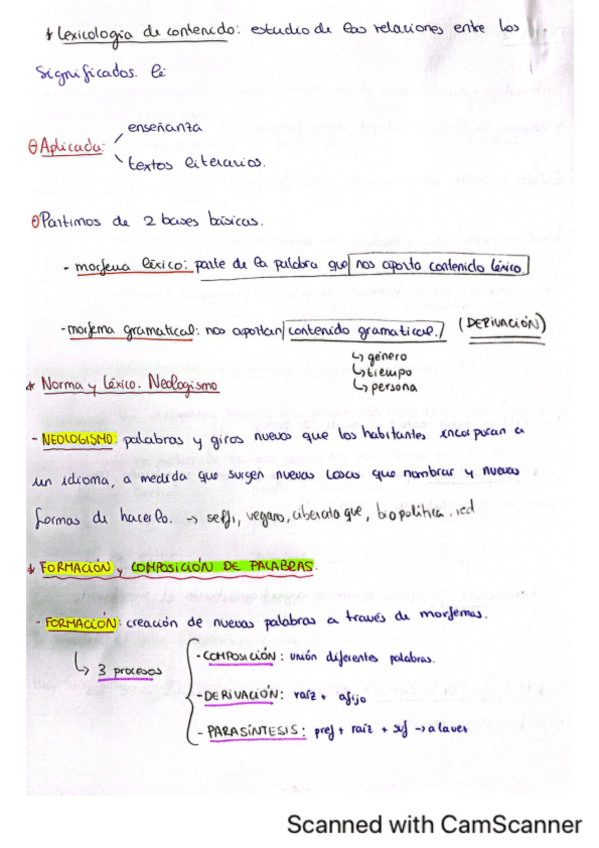 * Lexicología de contenido: estudio de las relaciones entre los
significados.
Aplicada: enseñanza
textos literarios.
Partimos de 2 bases básicas.
- morfema léxico: parte de la palabra que nos aporta contenido léxico
- morfema gramatical: nos aportan contenido gramatical. (DERIVACIÓN)
↳ género
↳ tiempo
↳ persona
* Norma y Léxico. Neologismo
- NEOLOGISMO: palabras y giros nuevos que los habitantes incorporan a
un idioma, a medida que surgen nuevas cosas que nombrar y nuevas
formas de hacerlo. → selfi, vegano, ciberataque, biopolítica, red
* FORMACIÓN y COMPOSICIÓN DE PALABRAS.
- FORMACIÓN: creación de nuevas palabras a través de morfemas.
↳ 3 procesos
- COMPOSICIÓN: unión diferentes palabras.
- DERIVACIÓN: raíz + afijo
- PARASÍNTESIS: pref + raíz + suf → a la vez
Scanned with CamScanner